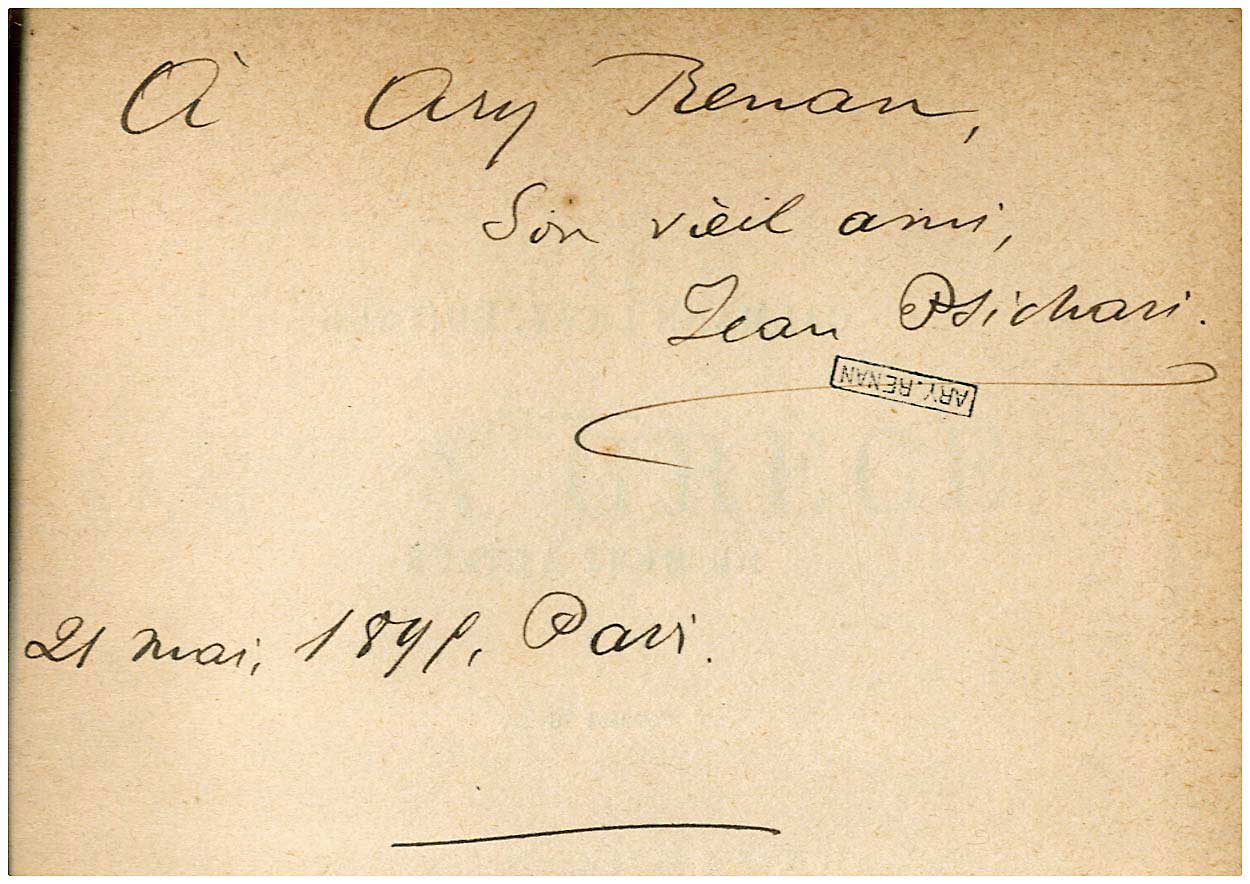 À Ary Renan,
Son vieil ami,
Jean Psichari.
ARY.RENAN
21 mai, Paris.